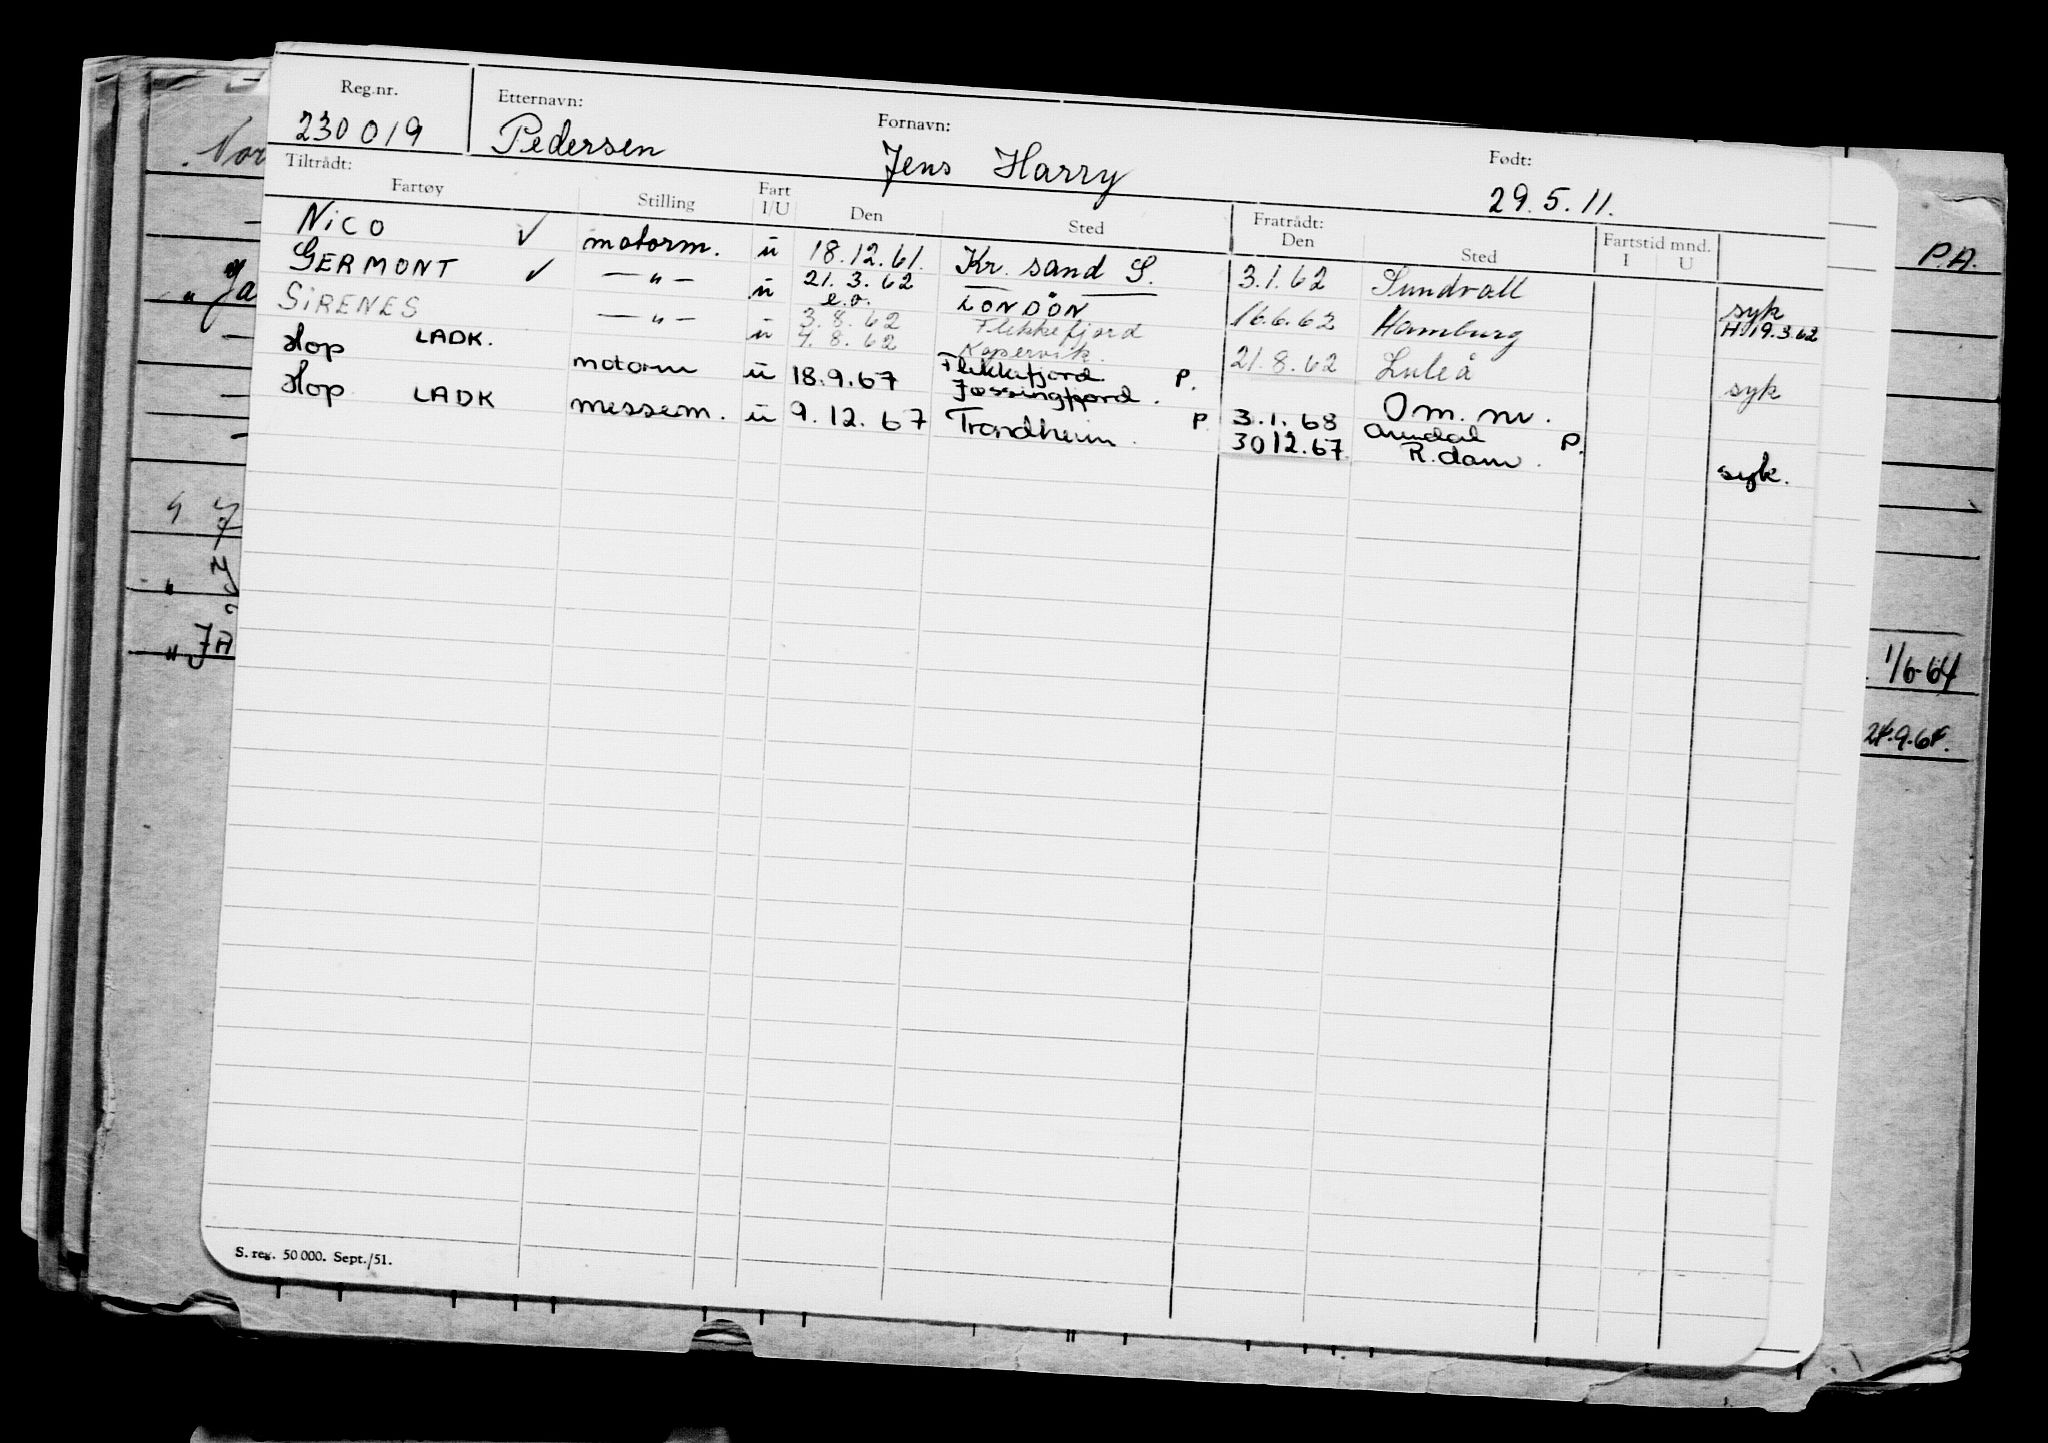 Reg.nr. Etternavn: Fornavn: Født:
230019 Pedersen Jens Harry 29.5.11.
Tiltrådt: Fratrådt:
Fartøy Stilling Fart I/U Den Sted Den Sted Fartstid mnd. I U
NICO ✓ motorm. u 18.12.61. Kr. sand S. 3.1.62 Sundvall syk
GERMONT ✓ —"— u 21.3.62 e.o. LONDON 16.6.62 Hamburg H 19.3.62
SIRENES —"— u 3.8.62 Flekkefjord
4.8.62 Kopervik. 21.8.62 Luleå syk
Hop LADK. motorm u 18.9.67 Flekkefjord P. Om. nv.
Jøssingfjord. 3.1.68 Arendal P.
Hop LADK messem. u 9.12.67 Trondheim. P. 30 12.67. R.dam. syk.
S. reg. 50 000. Sept./51.
Nor
" Ja
" JA
P.A.
1/6-64
24.9.64.